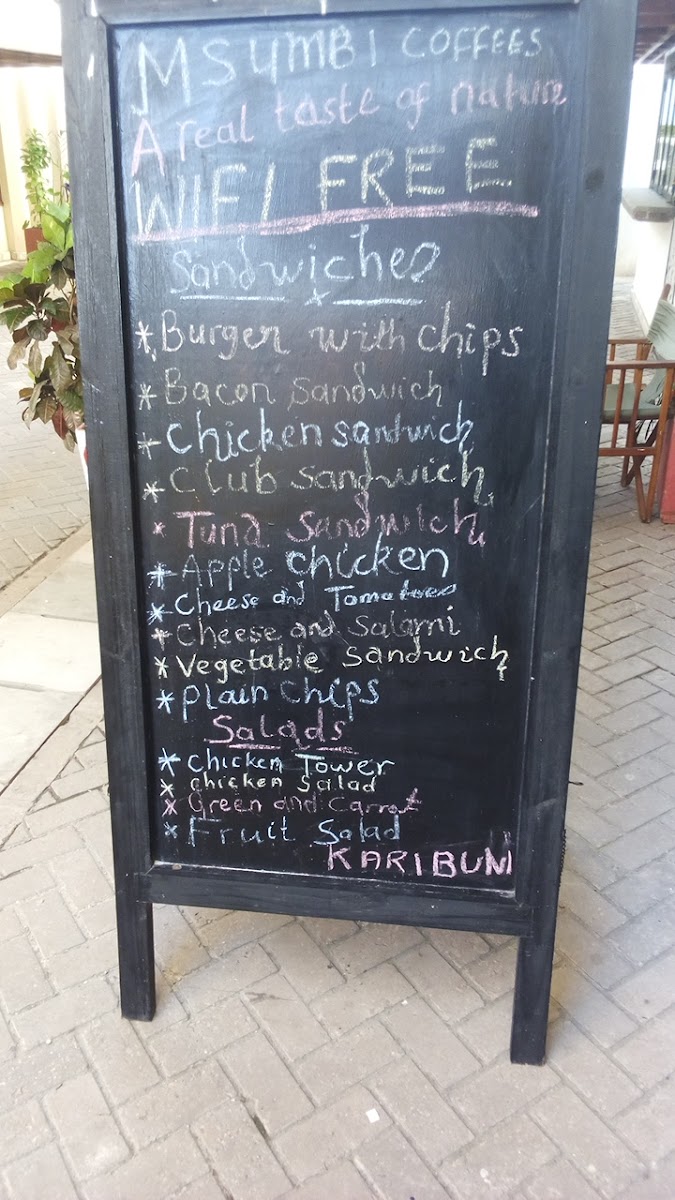 MSUMBI COFFEES
A real taste of nature
WIFI FREE
Sandwiches
* Burger with chips
* Bacon sandwich
* Chicken sandwich
* Club sandwich
* Tuna sandwich
* Apple chicken
* Cheese and Tomatoes
* Cheese and Salami
* Vegetable sandwich
* plain chips
Salads
* Chicken Tower
* chicken salad
* Green and Carrot
* Fruit Salad
KARIBUNI